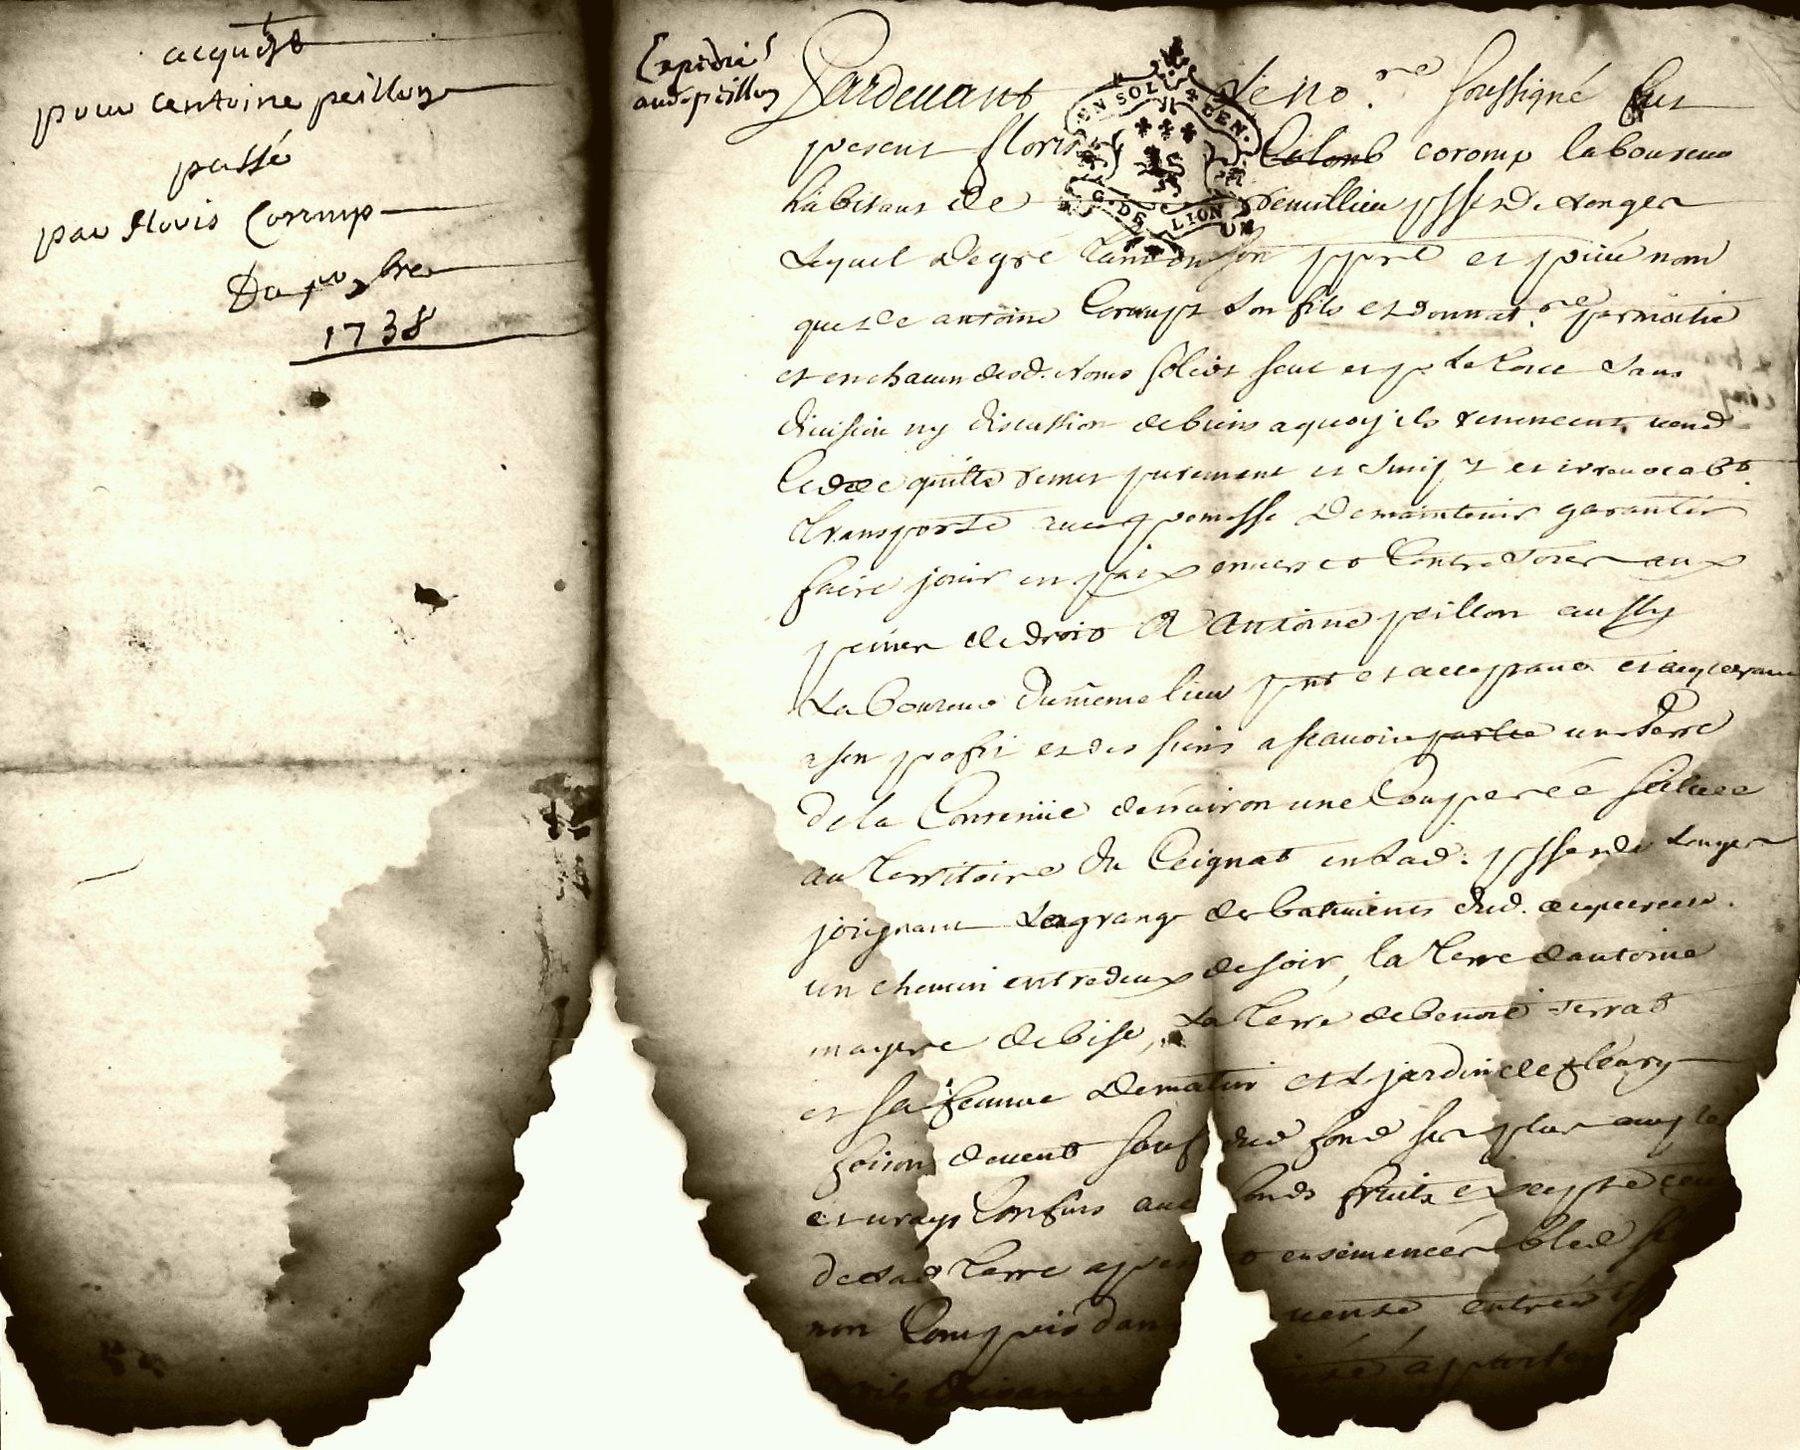 acquest
pour antoine peillon
passé
par Floris Coromp
Du 10 xbre
1738
Expedié
aud. peillon
Pardevant le no.re soussigné fut
present floris Coromp laboureur
habitant de psse de Longes
Lequel de gré tant en son ppre et privé nom
que de antoine Coromp son fils et donnat.re par moitié
et en chacun desd. noms solid.t seul et p. le tout sans
division ny discussion de biens a quoy ils renoncent, vend
cedde quitte remet purement et simp.t et irrevocab.t
transporte avec promesse de maintenir garantir
faire jouir en paix envers et contre tous aux
peines de droit a antoine peillon aussy
Laboureur du meme lieu pnt et acceptant et acquerant
a son profit et des siens a scavoir une terre
de la Contenüe denviron une Couperée scituee
au territoire du Ceignat en lad. psse de Longes
joignant la grange et batiments dud. acquereur
un chemin entredeux de soir, la terre dantoine
mayere de bise, La terre de benoit terrat
et sa femme de matin et le jardin de fleury
foison de vent sauf dud fond ses plus amples
et vrays Confins avec fonds fruits excepté ceux
de lad terre ensemencée bled
non Compris dan vente, entrées